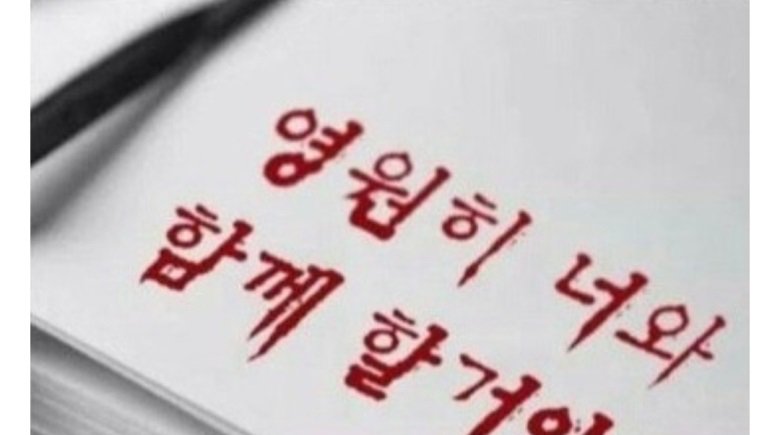 영원히 너와
함께 할거야